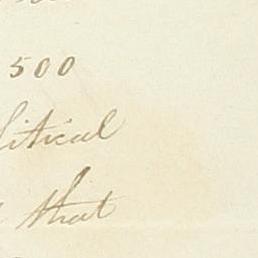 500
litical
that